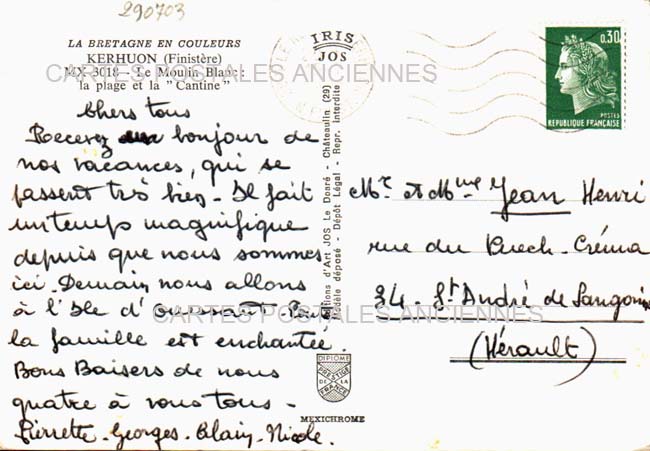 290703
LA BRETAGNE EN COULEURS
KERHUON (Finistère)
MX-3018 - Le Moulin Blanc :
la plage et la "Cantine"
IRIS
JOS
0,30
POSTES
REPUBLIQUE FRANÇAISE
CARTES POSTALES ANCIENNES
Chers tous
Recevez un bonjour de
nos vacances, qui se
passent très bien. Il fait
un temps magnifique
depuis que nous sommes
ici. Demain nous allons
à l'Ile d'ouessant. Toute
la famille est enchantée.
Bons Baisers de nous
quatre à vous tous -
Pierrette - Georges - Alain - Nicole.
Editions d'Art JOS Le Doaré - Châteaulin (29)
Modèle déposé - Dépôt Légal - Repr. Interdite
Mr. et Mme Jean Henri
rue du Puech-Créma
34 - St André de Sangonis
(Hérault)
CARTES POSTALES ANCIENNES
DIPLOME
PRESTIGE
DE LA
FRANCE
MEXICHROME